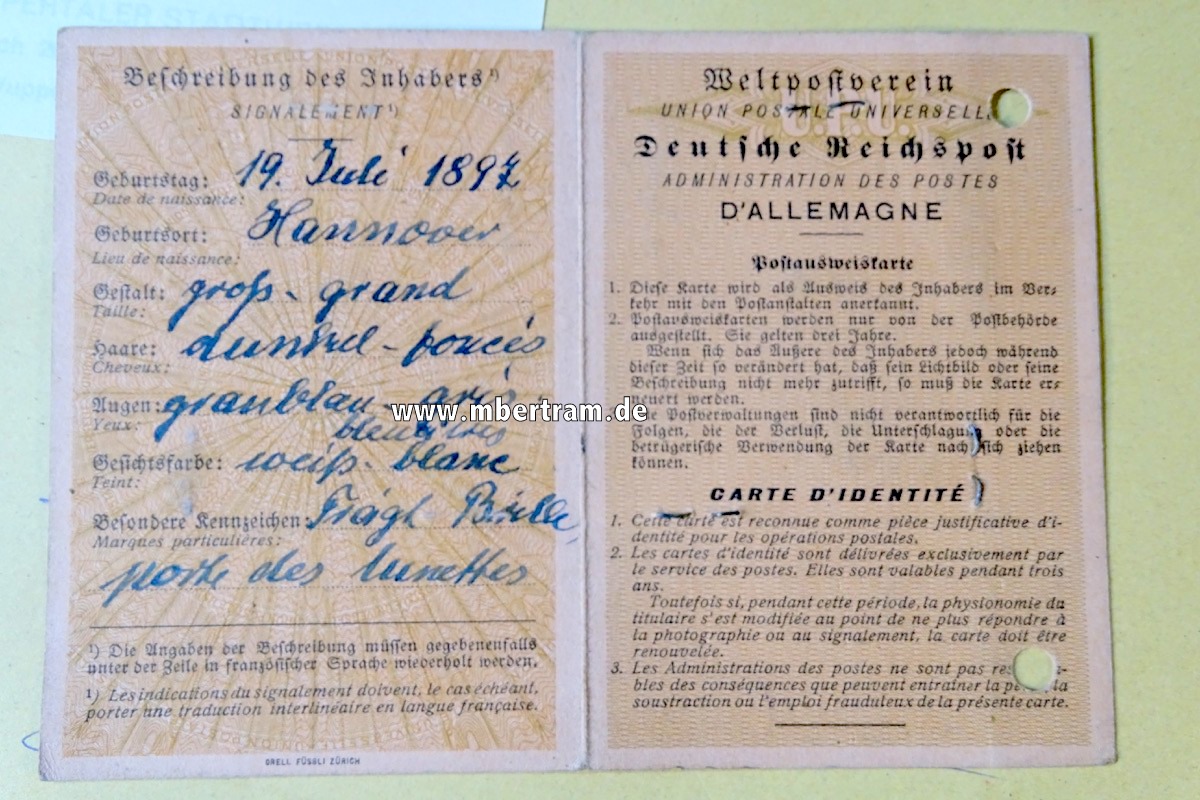 PERTALER STADTW
Beschreibung des Inhabers¹)
SIGNALEMENT¹)
Geburtstag: 19. Juli 1897
Date de naissance:
Geburtsort: Hannover
Lieu de naissance:
Gestalt: groß - grand
Taille:
Haare: dunkel - foncés
Cheveux:
Augen: graublau - gris
Yeux: bleuâtres
Gesichtsfarbe: weiß - blanc
Teint:
Besondere Kennzeichen: Trägt Brille,
Marques particulières:
porte des lunettes
¹) Die Angaben der Beschreibung müssen gegebenenfalls
unter der Zeile in französischer Sprache wiederholt werden.
¹) Les indications du signalement doivent, le cas échéant,
porter une traduction interlinéaire en langue française.
ORELL FÜSSLI ZÜRICH
Weltpostverein
UNION POSTALE UNIVERSELLE
Deutsche Reichspost
ADMINISTRATION DES POSTES
D'ALLEMAGNE
Postausweiskarte
1. Diese Karte wird als Ausweis des Inhabers im Ver-
kehr mit den Postanstalten anerkannt.
2. Postausweiskarten werden nur von der Postbehörde
ausgestellt. Sie gelten drei Jahre.
Wenn sich das Äußere des Inhabers jedoch während
dieser Zeit so verändert hat, daß sein Lichtbild oder seine
Beschreibung nicht mehr zutrifft, so muß die Karte er-
neuert werden.
Postverwaltungen sind nicht verantwortlich für die
Folgen, die der Verlust, die Unterschlagung oder die
betrügerische Verwendung der Karte nach sich ziehen
können.
CARTE D'IDENTITÉ
1. Cette carte est reconnue comme pièce justificative d'i-
dentité pour les opérations postales.
2. Les cartes d'identité sont délivrées exclusivement par
le service des postes. Elles sont valables pendant trois
ans.
Toutefois si, pendant cette période, la physionomie du
titulaire s'est modifiée au point de ne plus répondre à
la photographie ou au signalement, la carte doit être
renouvelée.
3. Les Administrations des postes ne sont pas res
bles des conséquences que peuvent entraîner la perte, la
soustraction ou l'emploi frauduleux de la présente carte.
www.mbertram.de